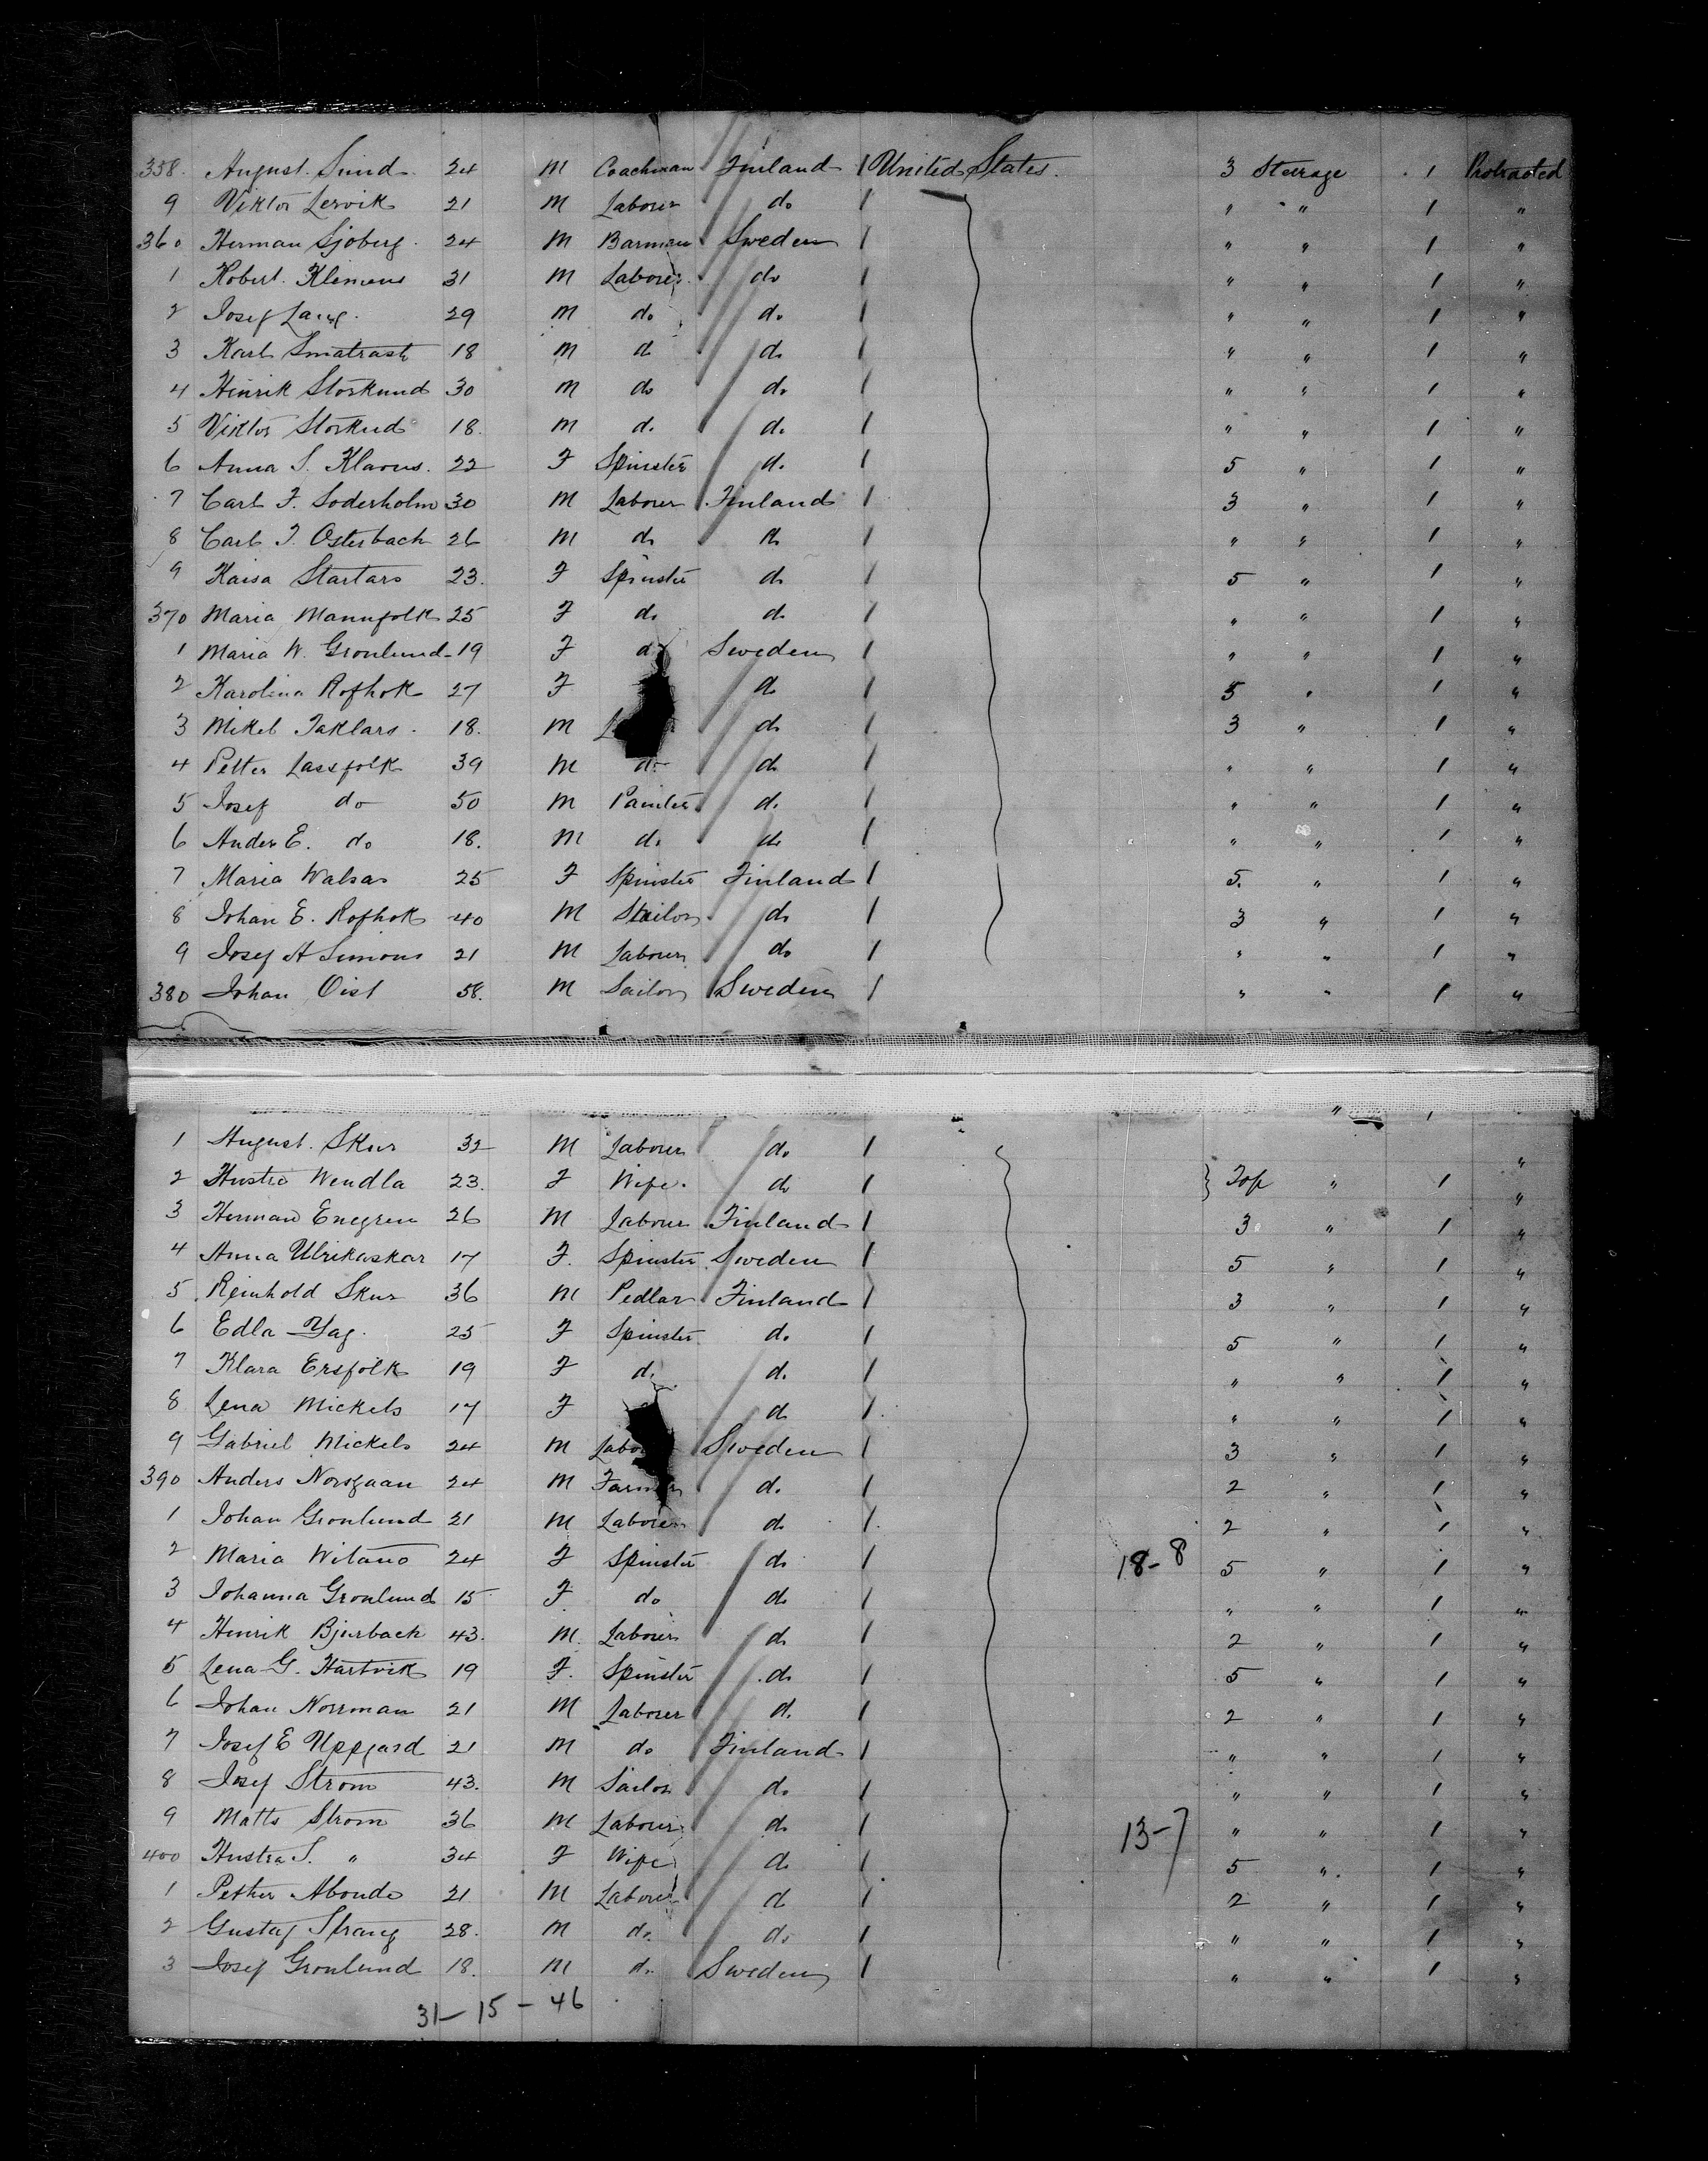 358. August. Sund. 24 M Coachman Finland 1 United States. 3 Steerage 1 Protracted
9 Viktor Lervik 21 M Laborer do 1 " " 1 "
360 Herman Sjoberg. 24 M Barman Sweden 1 " " 1 "
1 Robert. Klemens 31 M Laborer do 1 " " 1 "
2 Josef Lang. 29 M do do 1 " " 1 "
3 Karl Smatrast 18 M do do 1 " " 1 "
4 Hinrik Storknud 30 M do do 1 " " 1 "
5 Viktor Storkud 18. M do do 1 " " 1 "
6 Anna S. Klavus. 22 F Spinster do 1 5 " 1 "
7 Carl F. Soderholm 30 M Laborer Finland 1 3 " 1 "
8 Carl J. Osterbach 26 M do do 1 " " 1 "
9 Kaisa Startars 23. F Spinster do 1 5 " 1 "
370 Maria Mannfolk 25 F do do 1 " " 1 "
1 Maria W. Gronlund 19 F do Sweden 1 " " 1 "
2 Karolina Rofhok 27 F do 1 5 " 1 "
3 Mikel Jaklars. 18. M L do 1 3 " 1 "
4 Petter Lassfolk 39 M do do 1 " " 1 "
5 Josef do 50 M Painter do 1 " " 1 "
6 Anders E. do 18. M do do 1 " " 1 "
7 Maria Walsas 25 F Spinster Finland 1 5. " 1 "
8 Johan E. Rofhok 40 M Sailor do 1 3 " 1 "
9 Josef A Simons 21 M Laborer do 1 " " 1 "
380 Johan Oist 58. M Sailor Sweden 1 " " 1 "
" 1
1 August. Skur 32 M Laborer do 1 "
2 Hustro Wendla 23. F Wife. do 1 } Top " 1 "
3 Herman Enegren 26 M Laborer Finland 1 3 " 1 "
4 Anna Ulrikaskar 17 F. Spinster Sweden 1 5 " 1 "
5 Reinhold Skur 36 M Pedlar Finland 1 3 " 1 "
6 Edla Yag. 25 F Spinster do 1 5 " 1 "
7 Klara Ersfolk 19 F do do 1 " " 1 "
8 Lena Mickels 17 F do 1 " " 1 "
9 Gabriel Mickels 24 M Labo Sweden 1 3 " 1 "
390 Anders Norsgaan 24 M Farmer do 1 2 " 1 "
1 Johan Gronlund 21 M Laborer do 1 2 " 1 "
2 Maria Witano 24 F Spinster do 1 18-8 5 " 1 "
3 Johanna Gronlund 15 F do do 1 " " 1 "
4 Henrik Bjurback 43. M. Laborer do 1 2 " 1 "
5 Lena G. Hartvik 19 F. Spinster do 1 5 " 1 "
6 Johan Norrman 21 M Laborer do 1 2 " 1 "
7 Josef E Uppgard 21 M do Finland 1 " " 1 "
8 Josef Strom 43. M Sailor do 1 " " 1 "
9 Matts Strom 36 M Laborer do 1 13-7 " " 1 "
400 Hustra S. " 34 F Wife do 1 5 " 1 "
1 Pether Abonde 21 M Laborer do 1 2 " 1 "
2 Gustaf Sprang 28. M do do 1 " " 1 "
3 Josef Gronlund 18. M do Sweden 1 " " 1 "
31 - 15 - 46